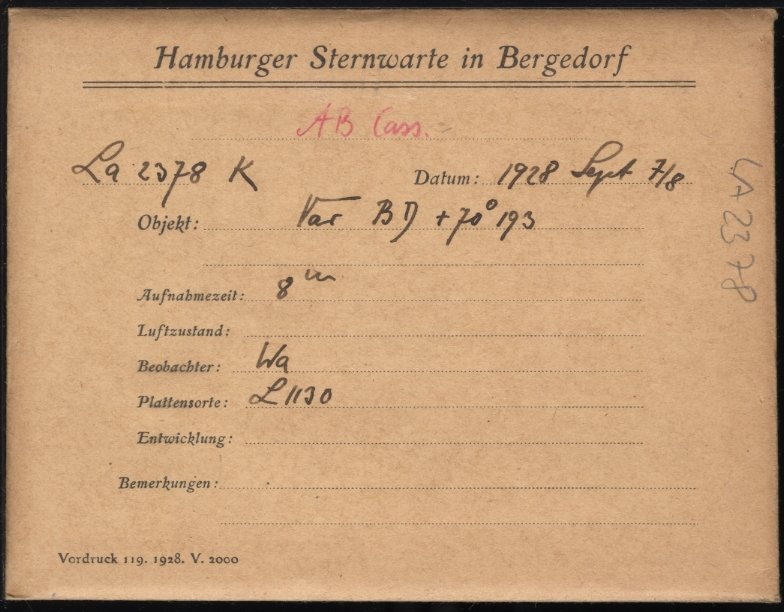 Hamburger Sternwarte in Bergedorf
AB Cass.
La 2378 K Datum: 1928 Sept 7/8
Objekt: Var BD +70° 193
Aufnahmezeit: 8 m
Luftzustand:
Beobachter: Wa
Plattensorte: L 1130
Entwicklung:
Bemerkungen:
Vordruck 119. 1928. V. 2000
LA 2378